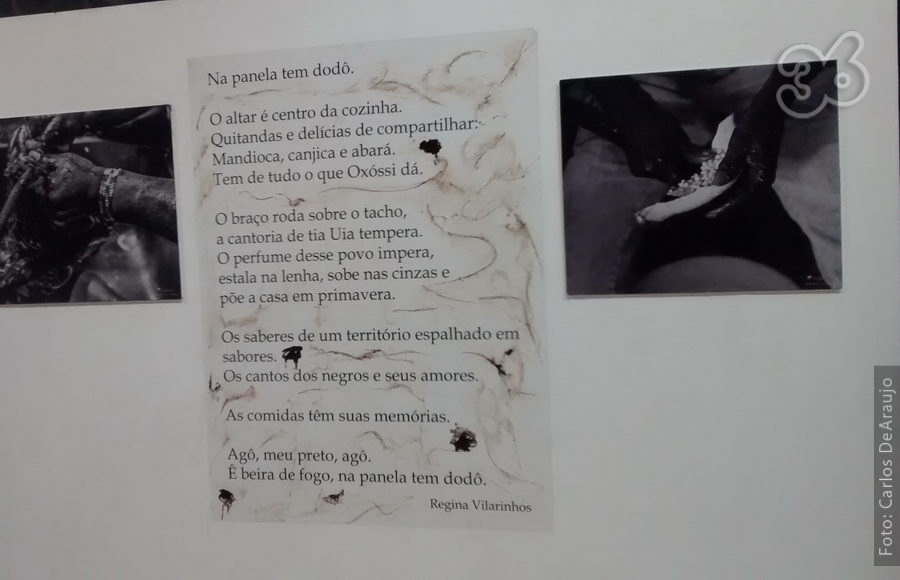 Na panela tem dodô.
O altar é centro da cozinha.
Quitandas e delícias de compartilhar:
Mandioca, canjica e abará.
Tem de tudo o que Oxóssi dá.
O braço roda sobre o tacho,
a cantoria de tia Uia tempera.
O perfume desse povo impera,
estala na lenha, sobe nas cinzas e
põe a casa em primavera.
Os saberes de um território espalhado em
sabores.
Os cantos dos negros e seus amores.
As comidas têm suas memórias.
Agô, meu preto, agô.
Ê beira de fogo, na panela tem dodô.
Regina Vilarinhos
36
Foto: Carlos DeAraujo